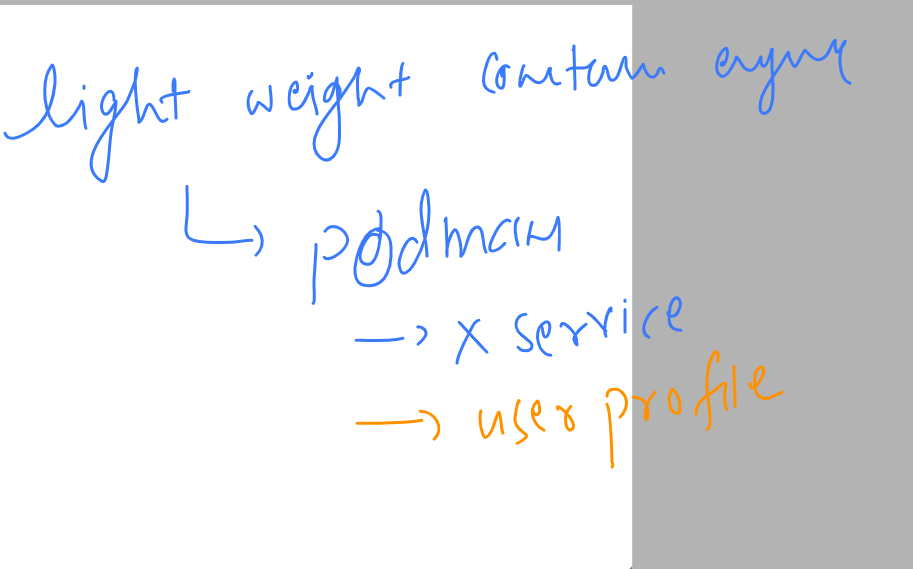 light weight contain engine
↳ podman
→ x service
→ user profile